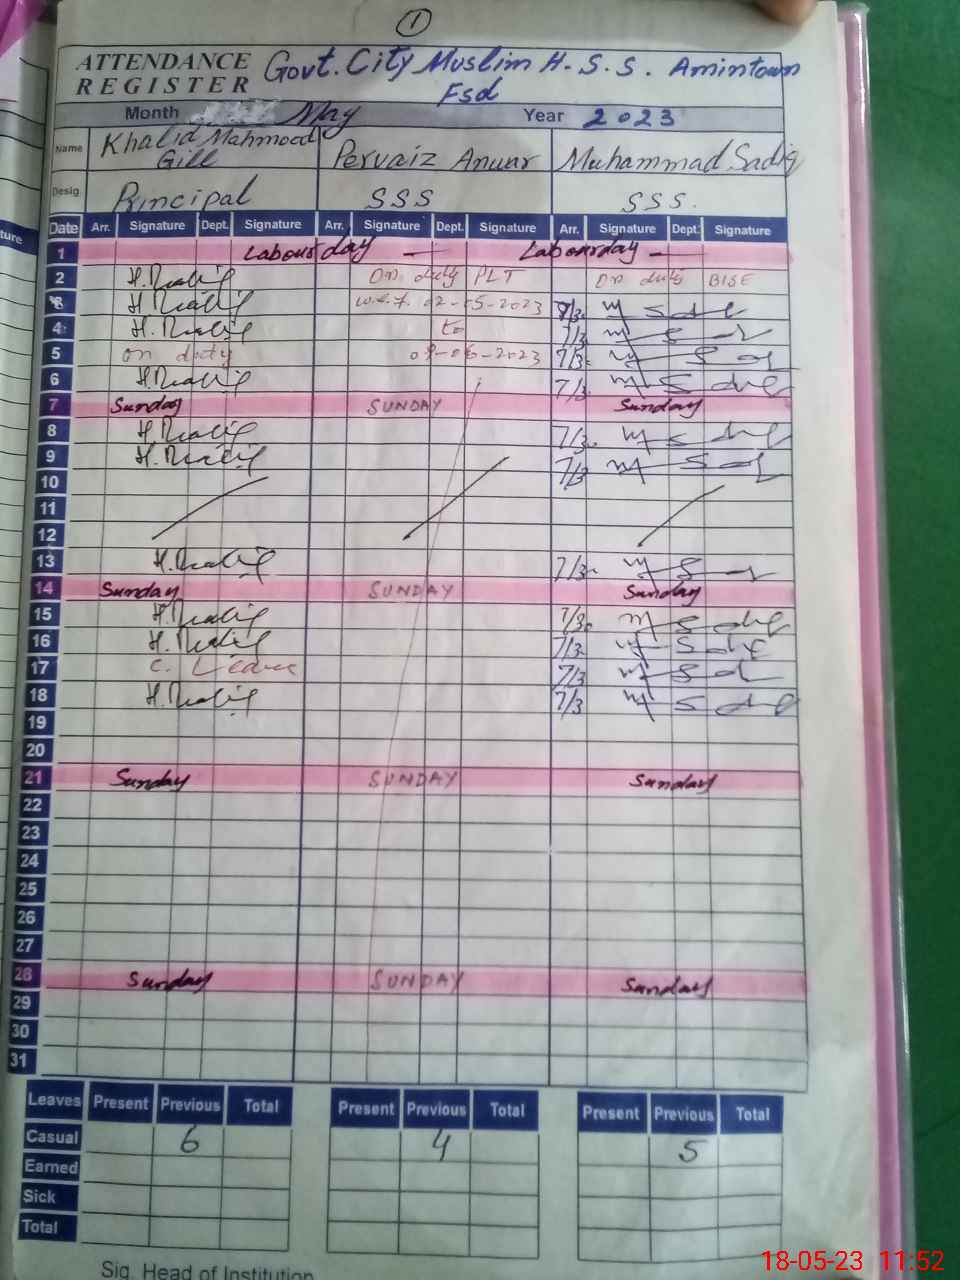 1
ATTENDANCE REGISTER Govt. City Muslim H.S.S. Amintown
Fsd
Month May Year 2023
Name Khalid Mahmood Gill Pervaiz Anwar Muhammad Sadiq
Desig. Principal SSS SSS.
Date Arr. Signature Dept. Signature Arr. Signature Dept. Signature Arr. Signature Dept. Signature
1 Labour day Labourday
2 On duty PLT On duty BISE
3 w.e.f. 02-05-2023 7/3.
4 to 7/3.
5 on duty 7/3.
6 7/3.
7 Sunday SUNDAY Sunday
8 7/3.
9 7/3.
10
11
12
13 7/3.
14 Sunday SUNDAY Sunday
15 7/3.
16 7/3
17 C. Leave 7/3
18 7/3
19
20
21 Sunday SUNDAY Sunday
22
23
24
25
26
27
28 Sunday SUNDAY Sunday
29
30
31
Leaves Present Previous Total Present Previous Total Present Previous Total
Casual 6 4 5
Earned
Sick
Total
Sig. Head of Institution
18-05-23 11:52